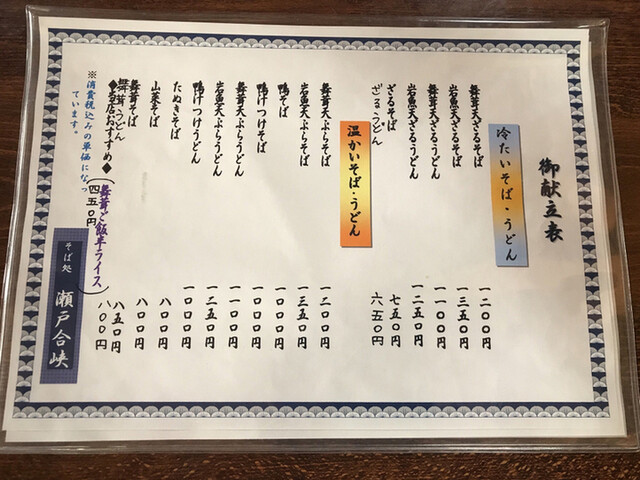 御献立表
冷たいそば・うどん
舞茸天ざるそば 一二〇〇円
岩魚天ざるそば 一三五〇円
舞茸天ざるうどん 一一〇〇円
岩魚天ざるうどん 一二五〇円
ざるそば 七五〇円
ざるうどん 六五〇円
温かいそば・うどん
舞茸天ぷらそば 一二〇〇円
岩魚天ぷらそば 一三五〇円
鴨そば 一〇〇〇円
鴨汁つけそば 一〇〇〇円
舞茸天ぷらうどん 一一〇〇円
岩魚天ぷらうどん 一二五〇円
鴨汁つけうどん 一〇〇〇円
たぬきそば 八〇〇円
山菜そば 八〇〇円
舞茸そば 八五〇円
舞茸うどん 八〇〇円
◆当店おすすめ◆
(舞茸ご飯半ライス)
四五〇円
※消費税込みの単価になっ
ています。
そば処 瀬戸合峡